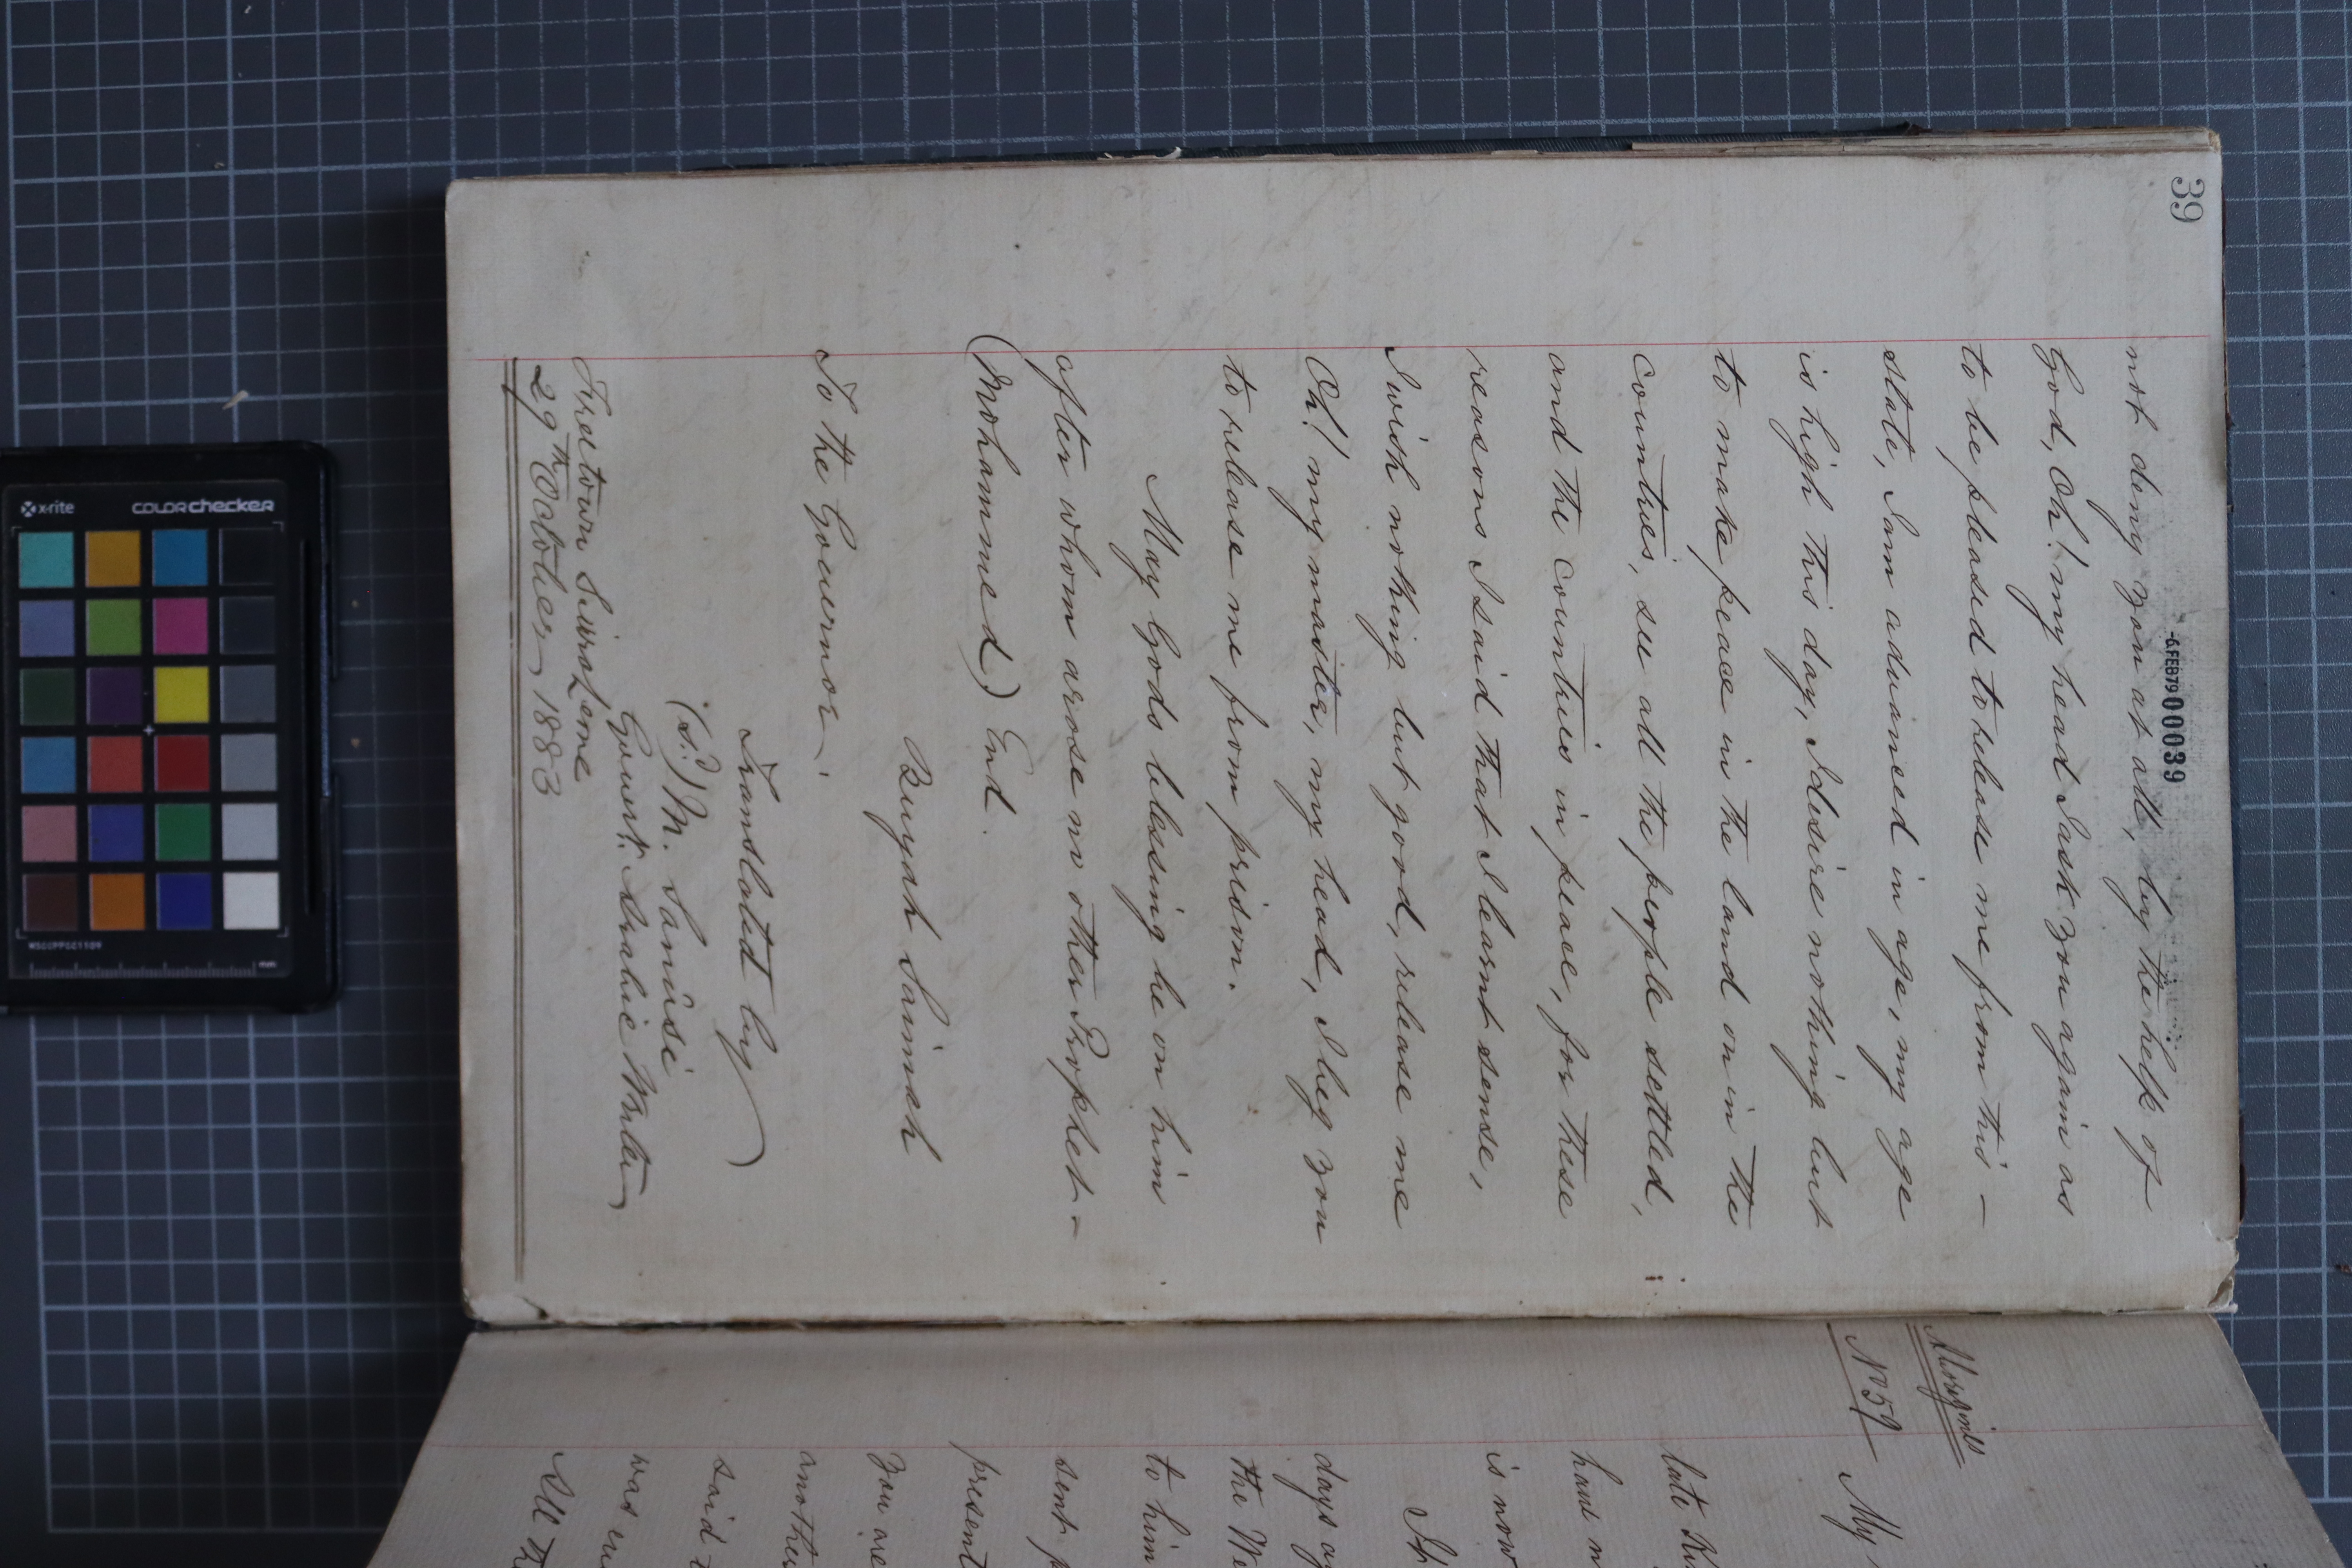 39
-6 FEB 79 000039
not deny you at all, by the help of
God, Oh! my head I ask you again as
to be pleased to release me from this -
state, I am advanced in age, my age
is high this day, I desire nothing but
to make peace in the land on in the
countries, see all the people settled,
and the countries in peace, for these
reasons I said that I learnt sense,
I wish nothing but good, release me
Oh! my master, my head, I beg you
to release me from prison.
May Gods blessing be on him
after whom arose no other Prophet -
(Mohammed) End.
Buyah Saimah
To the Governor.
Translated by
(s?) M. Sanûsi
Govert. Arabic Writer
Freetown Sierra Leone
29th October, 1883
No 59
My
late
have
is now
days
the
to him
sent
present
you are
another
said
was
All
x-rite
colorchecker
MSCCPPCC1109
mm